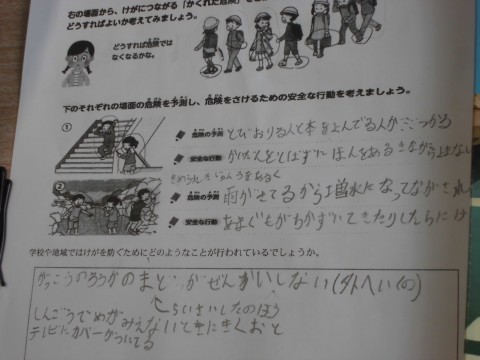 右の場面から、けがにつながる「かくれた危険」
どうすればよいか考えてみましょう。
どうすれば危険では
なくなるかな。
下のそれぞれの場面の危険を予測し、危険をさけるための安全な行動を考えましょう。
①
危険の予測 とびおりる人と本をよんでる人が ぶつかる
安全な行動 かいだんをとばずに ほんをあるきながらよまない
きめられた あるく
②
危険の予測 雨がふってるから増水になってながされ
安全な行動 あまぐもがちかづいてきたりしたらにげ
学校や地域ではけがを防ぐためにどのようなことが行われているでしょうか。
がっこうのろうかのまどがぜんかいしない(外へい
らいさいしたのほう
しんごうでめがみえないときにきくおと
テレビにカバーがついてる